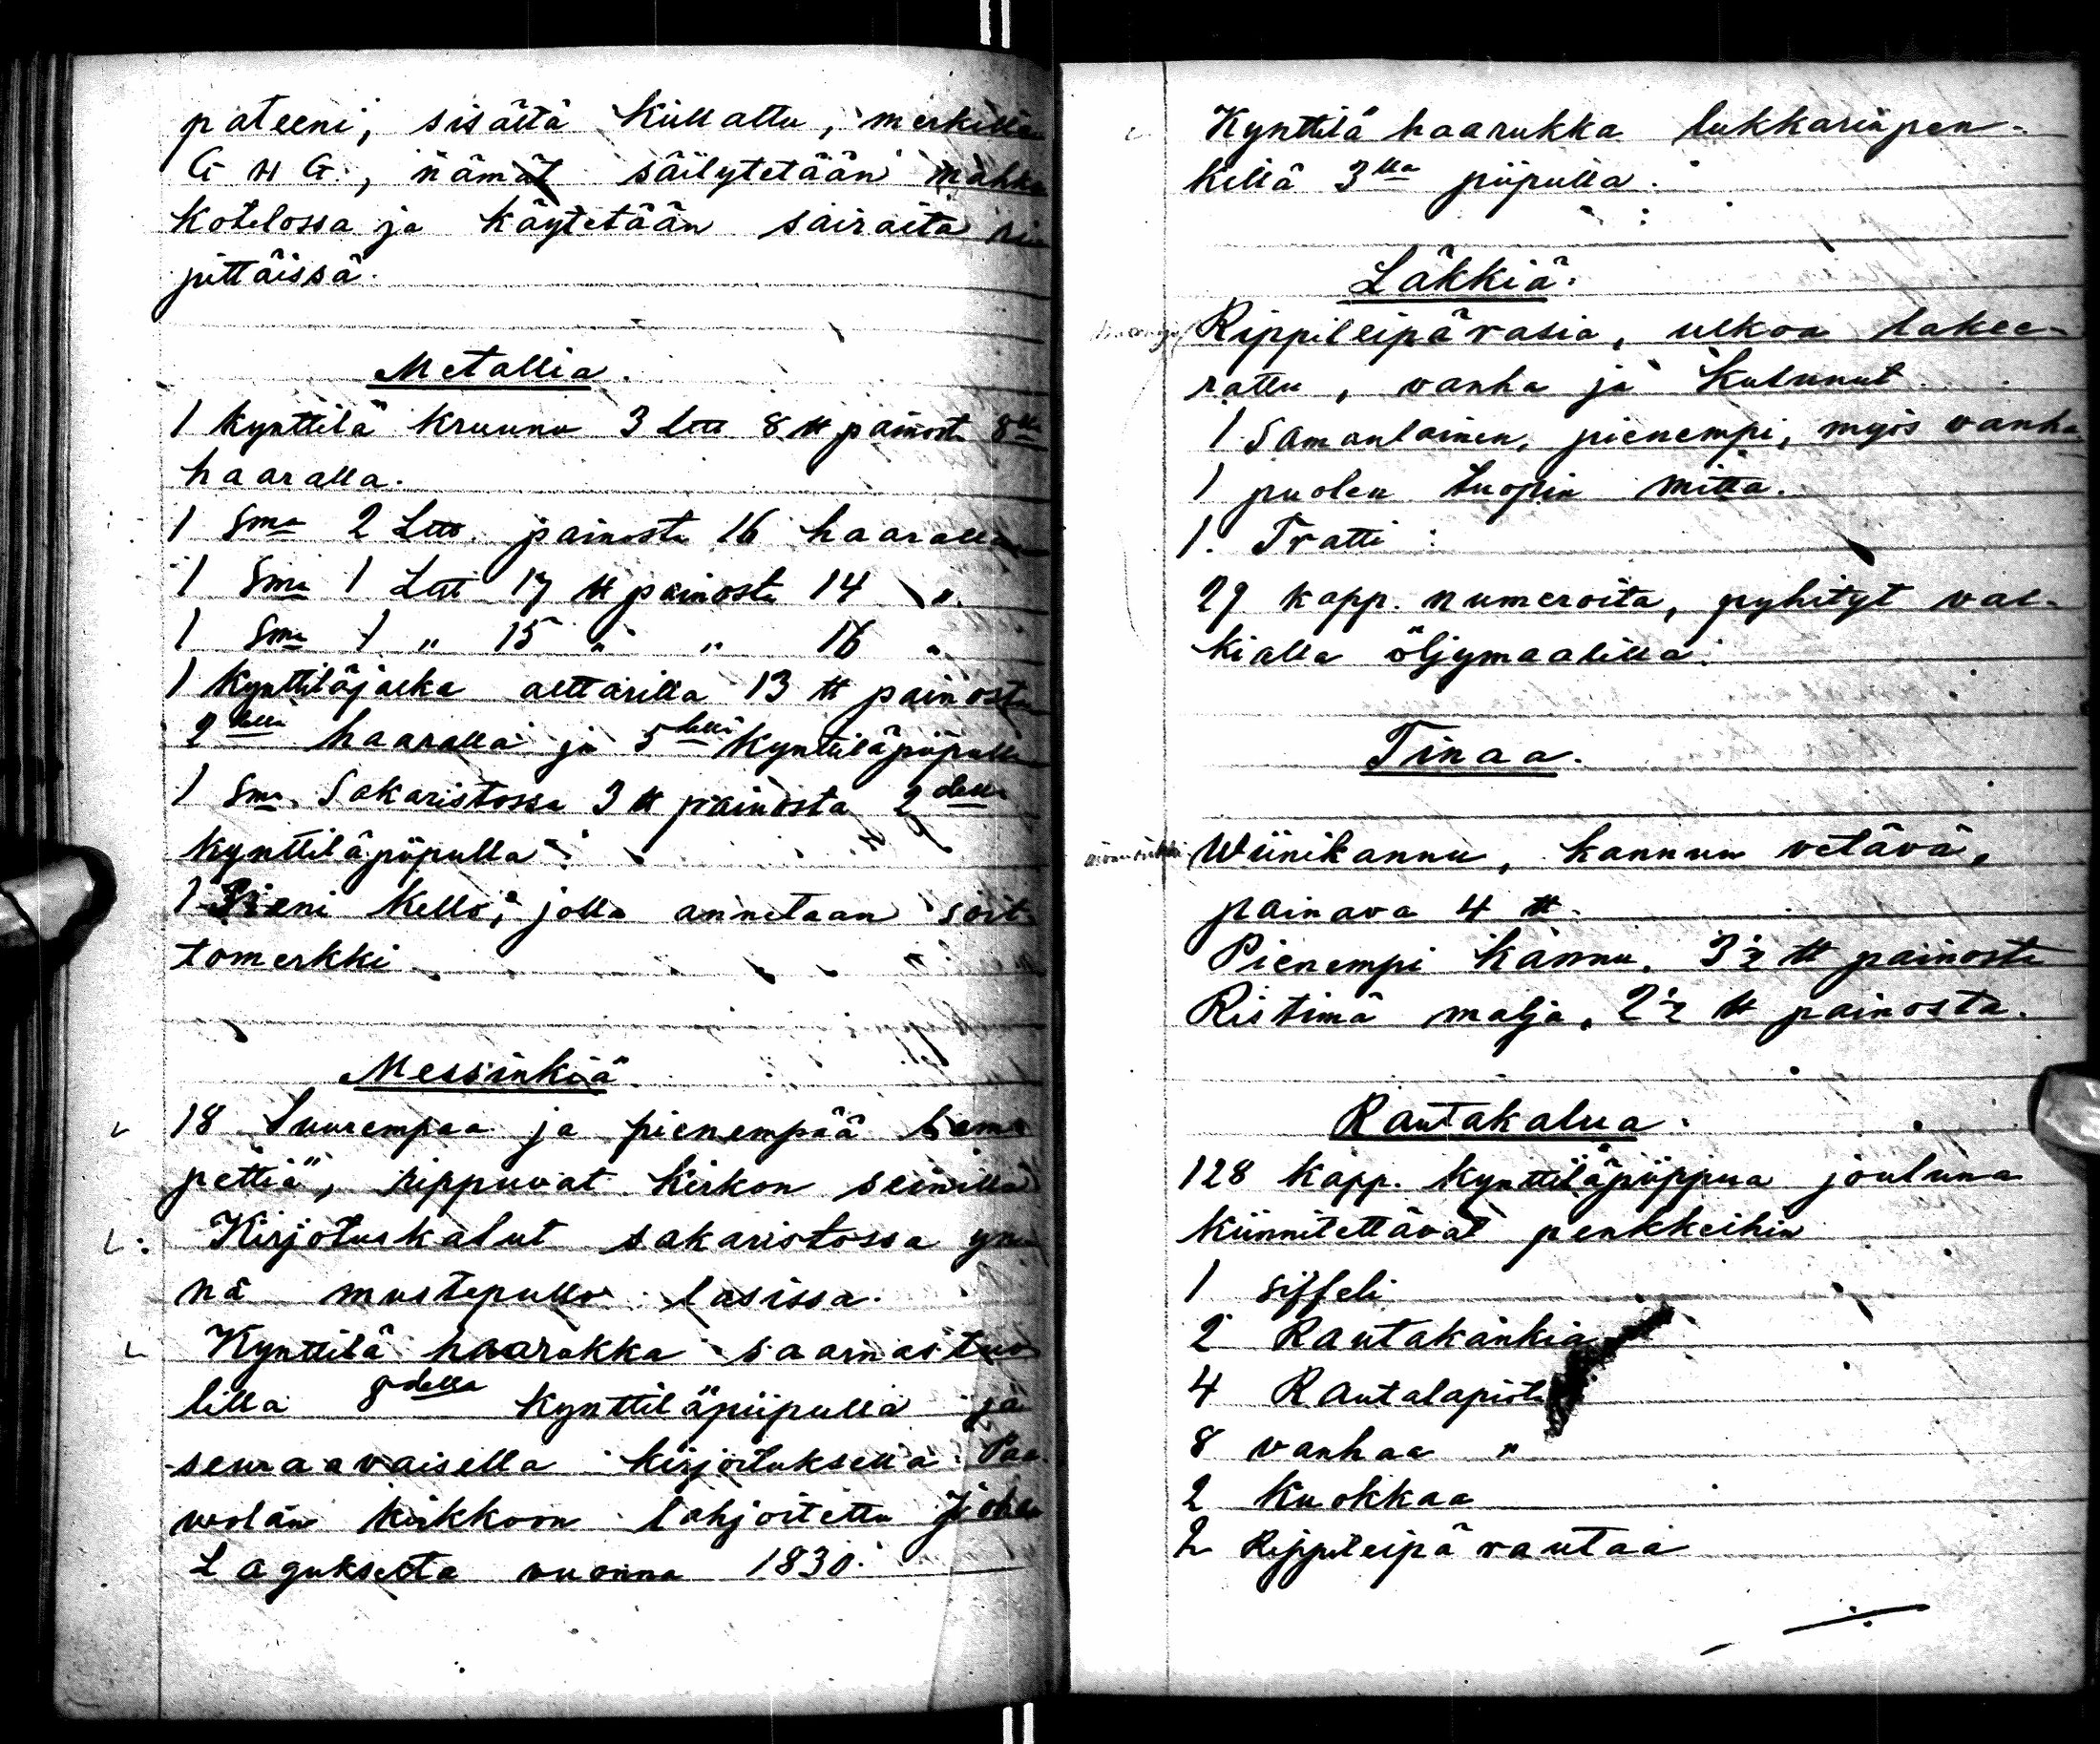 pateeni, sisältä kullattu, merkillä
G H G., nämät säilytetään nahka
kotelossa ja käytetään sairaita rip
pittäissä.
Metallia.
1 kynttilä kruunu 3 L℔ 8 ℔ painosta 8lla
haaralla.
1 Sma 2 L℔. painosta 16 haaralla
1 Sma 1 L℔ 17 ℔ painosta 14 "
1 Sma 1 " 15 " " 16 "
1 kynttiläjalka alttarilla 13 ℔ painosta
2lla haaralla ja 5llä kynttiläpiipulla
1 Sma. Sakaristossa 3 ℔ painosta 2della
kynttiläpiipulla
1 Pieni kello, jolla annetaan soit-
tomerkki
Messinkiä
18 Suurempaa ja pienempää lam-
pettiä, rippuvat kirkon seinillä
Kirjotuskalut sakaristossa yn-
nä mustepullo lasissa.
Kynttilä haarukka saarnastuo
lilla 8della kynttiläpiipulla ja
seuraavaisella kirjoituksella: Paa-
volan kirkkoon lahjoitettu Johan
Lagukselta vuonna 1830.
Kynttilä haarukka lukkarinpen-
killä 3lla piipulla.
Läkkiä.
Rippileipärasia, ulkoa lakee-
rattu, vanha ja kulunut
1 Samanlainen, pienempi, myös vanha
1 puolen tuopin mitta.
1. Tratti
29 kapp. numeroita, pyhityt val-
kialla öljymaalilla.
Tinaa.
Wiinikannu, kannun vetävä,
painava 4 ℔.
Pienempi kannu, 3½ ℔ painosta
Ristimä malja, 2½ ℔ painosta.
Rautakalua.
128 kapp. kynttiläpiippua jouluna
kiinnitettävät penkkeihin
1 Siffeli
2 Rautakankia
4 Rautalapiota
8 vanhaa "
2 Kuokkaa
2 Rippileipä rautaa